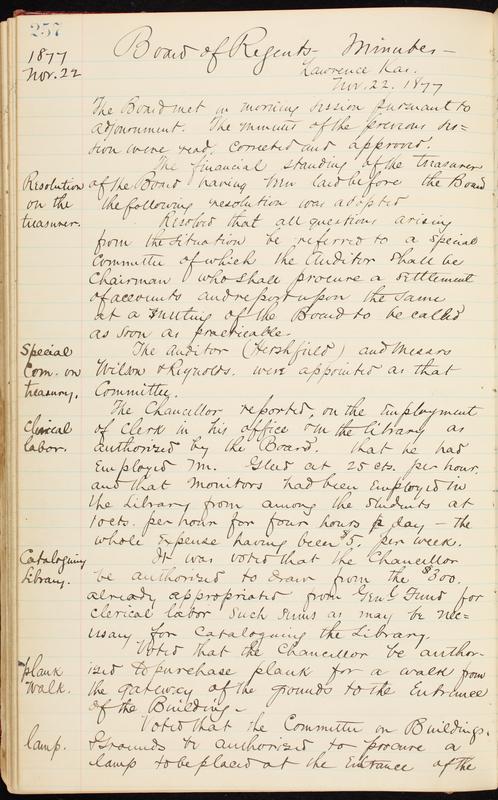 257
1877
Nov. 22
Board of Regents - Minutes -
Lawrence Kas.
Nov. 22. 1877
The Board met in morning session pursuant to
adjournment. The minutes of the previous ses-
sion were read, corrected and approved.
The financial standing of the treasurer
Resolution on the treasurer.
of the Board having been laid before the Board
the following resolution was adopted
Resolved that all questions arising
from the situation be referred to a special
Committee of which the Auditor shall be
Chairman who shall procure a settlement
of accounts and report upon the same
at a meeting of the Board to be called
as soon as practicable.
Special Com. on treasury.
The Auditor (Hershfield) and Messrs
Wilson & Reynolds. were appointed as that
Committee.
The Chancellor reported, on the employment
Clerical labor.
of Clerk in his office & in the library as
authorized by the Board. that he had
Employed Mr. Gleed at 25 cts. per hour,
and that monitors had been employed in
the Library from among the students at
10 cts. per hour for four hours p day - the
whole expense having been $5. per week.
Cataloguing Library.
It was voted that the Chancellor
be authorized to draw from the $300.
already appropriated from Gen'l Fund for
clerical labor such sums as may be nec-
essary for Cataloguing the Library.
Voted that the Chancellor be author-
plank walk.
ized to purchase plank for a walk from
the gateway of the grounds to the Entrance
of the Building -
Voted that the Committee on Buildings.
lamp.
& Grounds be authorized to procure a
lamp to be placed at the Entrance of the